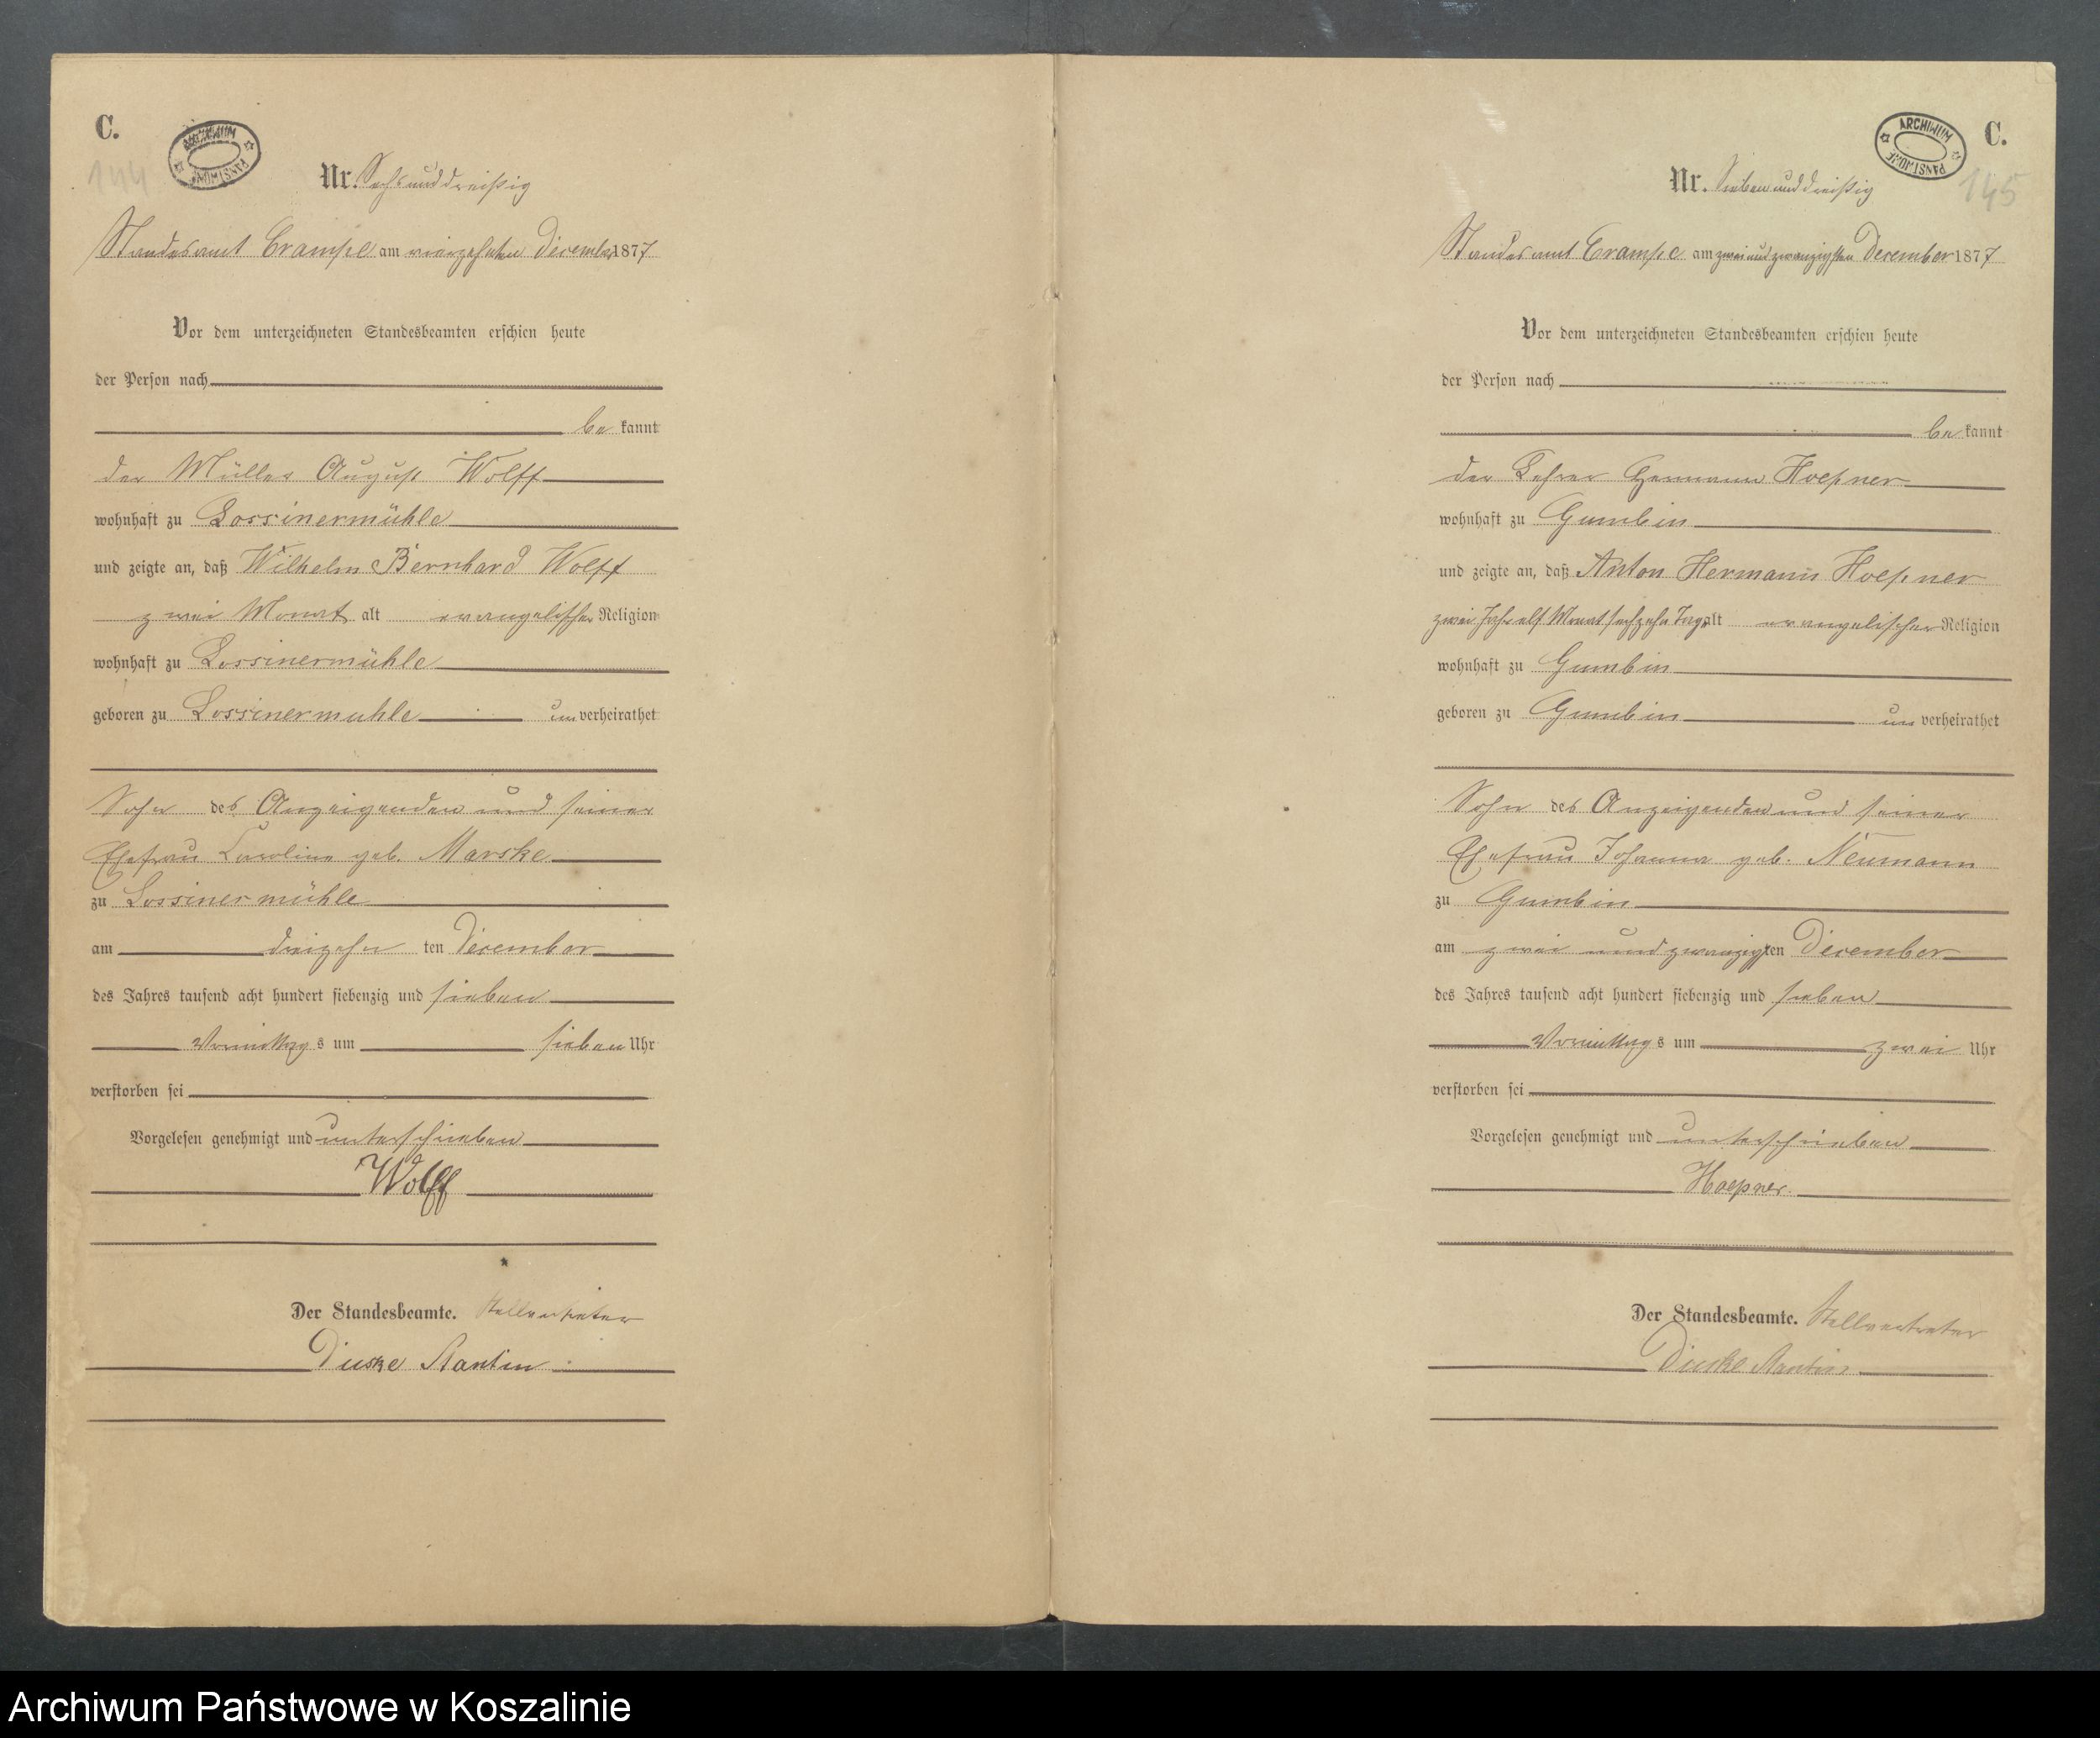 C.
ARCHIWUM PAŃSTWOWE
144
Nr. Sechsunddreißig
Standesamt Crampe am vierzehnten December 1877
Vor dem unterzeichneten Standesbeamten erschien heute
der Person nach
be kannt
der Müller August Wolff
wohnhaft zu Lossinermühle
und zeigte an, daß Wilhelm Bernhard Wolff
zwei Monat alt evangelischer Religion
wohnhaft zu Lossinermühle
geboren zu Lossinermuhle un verheirathet
Sohn des Anzeigenden und seiner
Ehefrau Caroline geb. Marske
zu Lossinermühle
am dreizehn ten December
des Jahres tausend acht hundert siebenzig und sieben
Vormittags um sieben Uhr
verstorben sei
Vorgelesen genehmigt und unterschrieben
Wolff
Der Standesbeamte. Stellvertreter
Duske Stantin
C.
ARCHIWUM PAŃSTWOWE
145
Nr. Siebenunddreißig
Standesamt Crampe am zweiundzwanzigsten December 1877
Vor dem unterzeichneten Standesbeamten erschien heute
der Person nach
be kannt
der Lehrer Hermann Hoepner
wohnhaft zu Gumbin
und zeigte an, daß Anton Hermann Hoepner
zwei Jahr elf Monat sechzehn Tag alt evangelischer Religion
wohnhaft zu Gumbin
geboren zu Gumbin un verheirathet
Sohn des Anzeigenden und seiner
Ehefrau Johanna geb. Neumann
zu Gumbin
am zwei und zwanzigsten December
des Jahres tausend acht hundert siebenzig und sieben
Vormittags um zwei Uhr
verstorben sei
Vorgelesen genehmigt und unterschrieben
Hoepner.
Der Standesbeamte. Stellvertreter
Duske Stantin
Archiwum Państwowe w Koszalinie